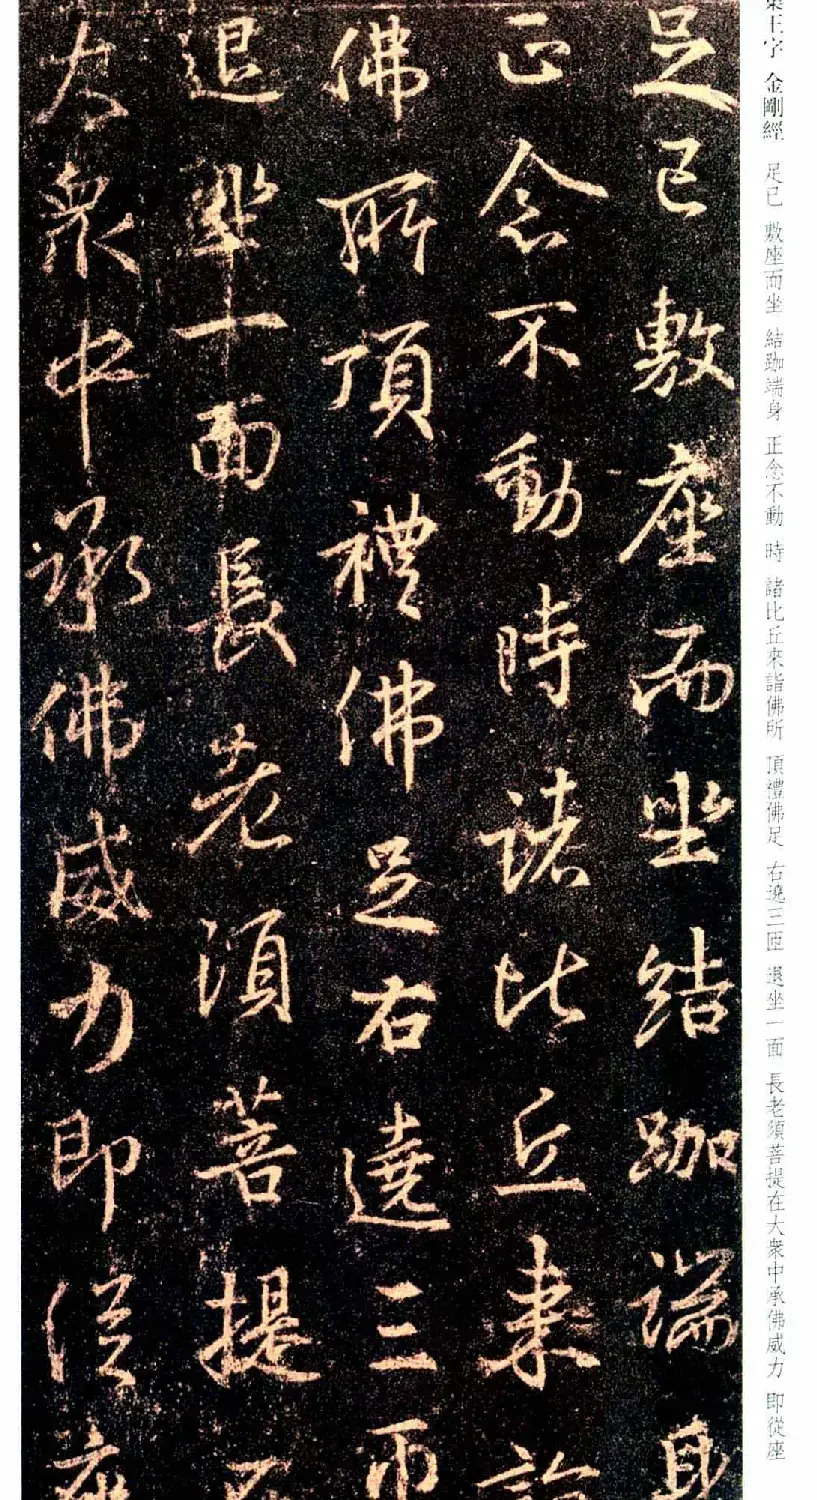 王字 金剛經 足已 敷座而坐 結跏端身 正念不動 時 諸比丘來詣佛所 頂禮佛足 右遶三匝 退坐一面 長老須菩提在大衆中承佛威力 即從座
足已敷座而坐結跏端身
正念不動時諸比丘來詣
佛所頂禮佛足右遶三匝
退坐一面長老須菩提在
大衆中承佛威力即從座